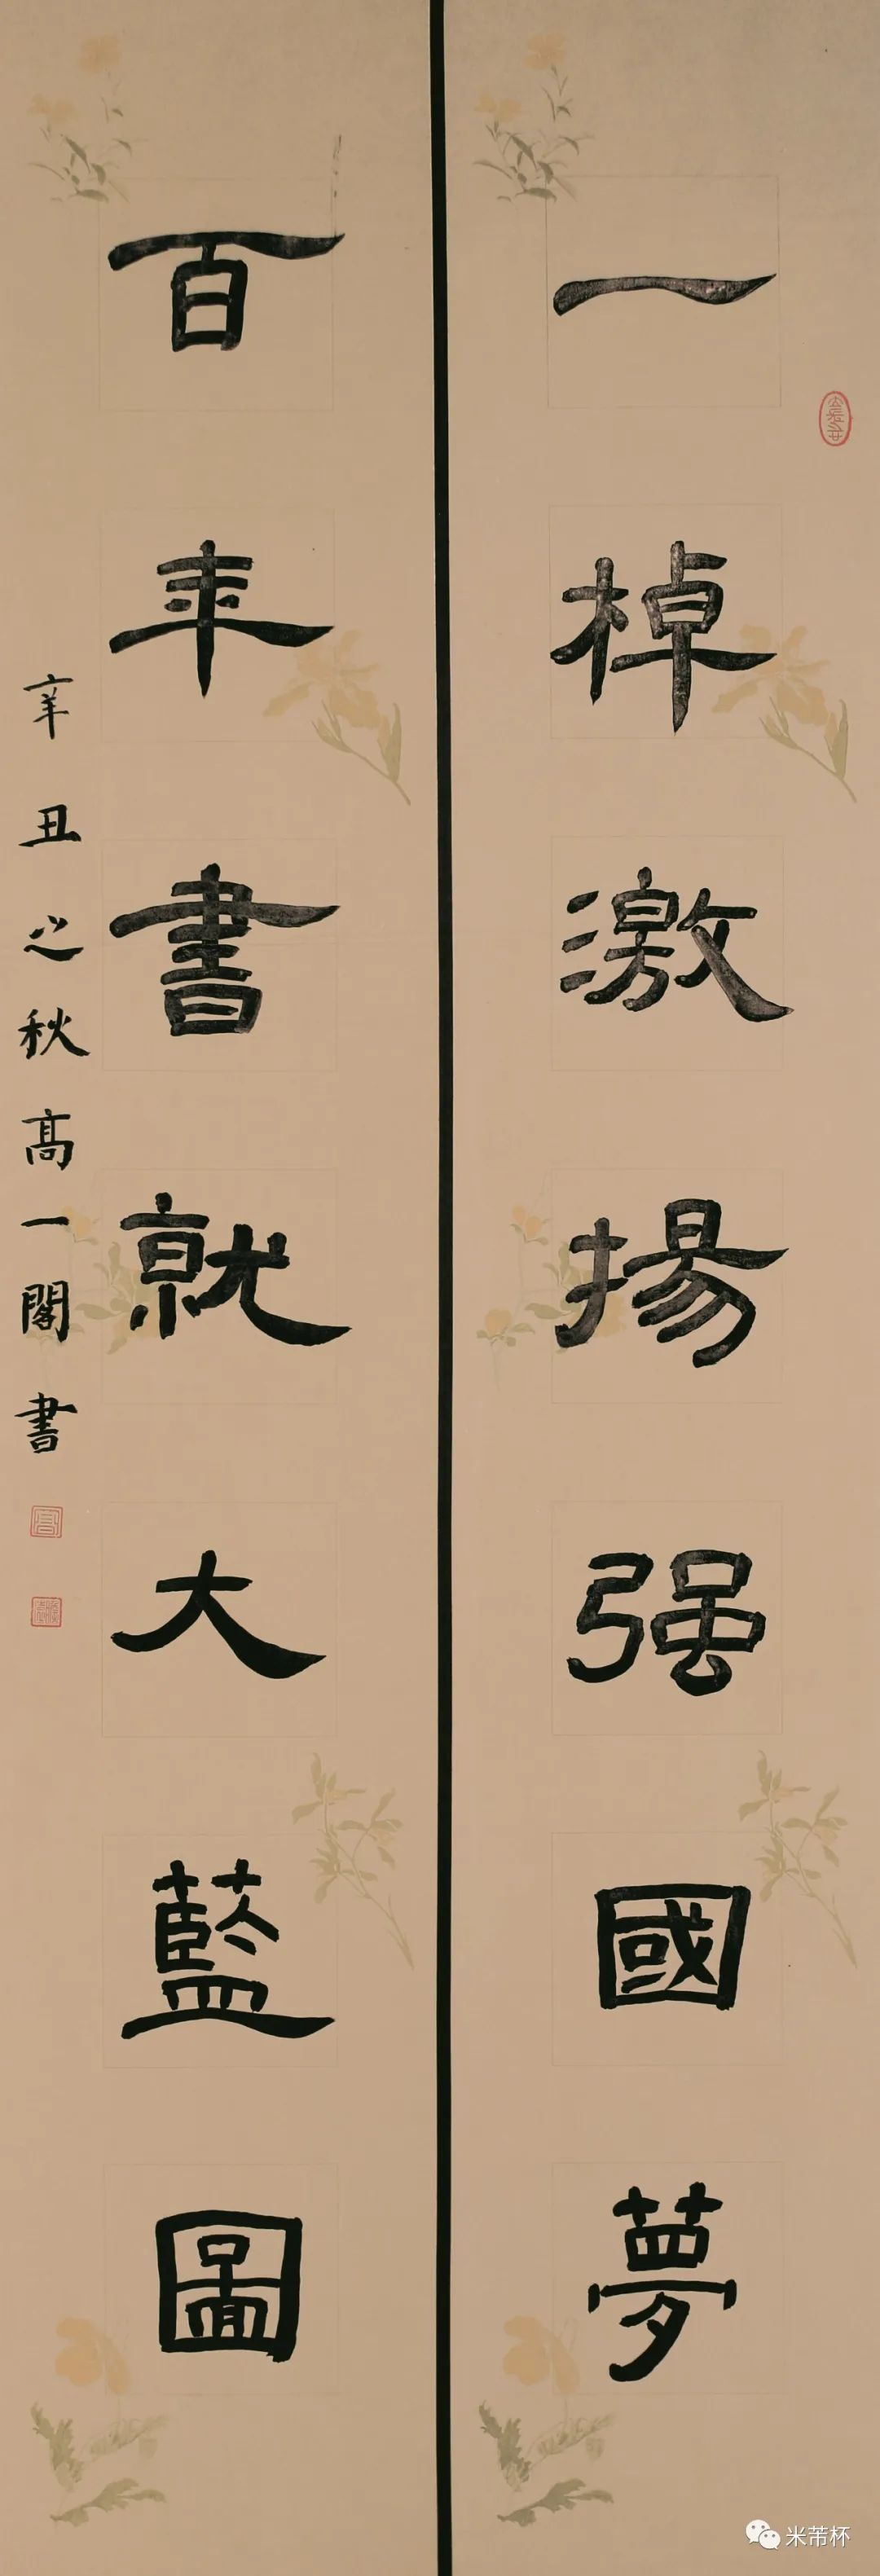 一棹激揚强國夢
百年書就大藍圖
辛丑之秋高一閣書
米芾杯